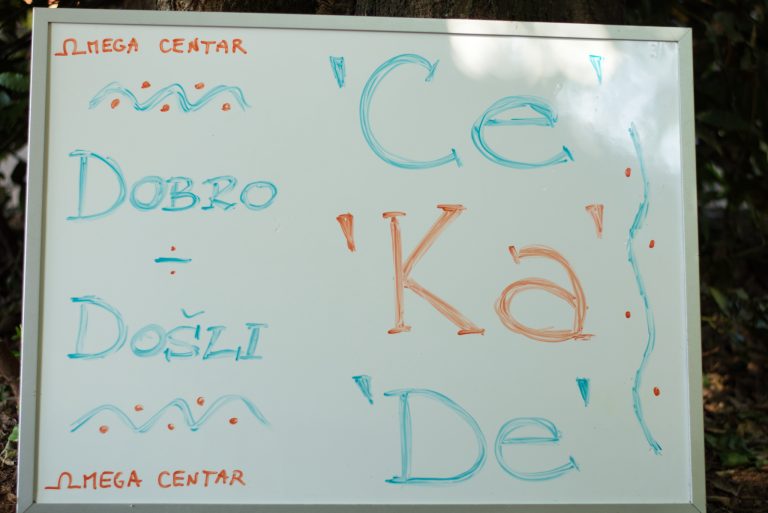 ΩMEGA CENTAR
DOBRO
÷
DOŠLI
ΩMEGA CENTAR
'Ce'
'Ka'
'De'